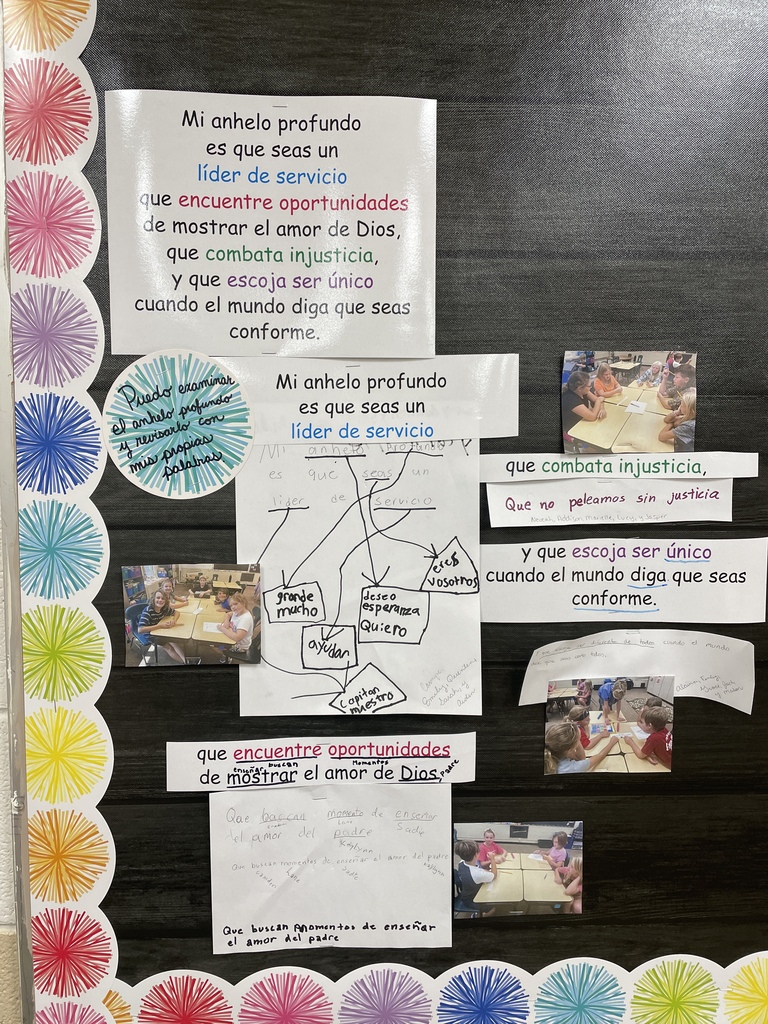 Mi anhelo profundo
es que seas un
líder de servicio
que encuentre oportunidades
de mostrar el amor de Dios,
que combata injusticia,
y que escoja ser único
cuando el mundo diga que seas
conforme.
Puedo examinar
el anhelo profundo
y revisarlo con
mis propias
palabras
Mi anhelo profundo
es que seas un
líder de servicio
Mi anhelo profundo
es que seas un
lider de servicio
eres
vosotros
grande
mucho
deseo
esperanza
Quiero
ayudar
capitan
muestro
que combata injusticia,
Que no peleamos sin justicia
y que escoja ser único
cuando el mundo diga que seas
conforme.
cuando el mundo
que encuentre oportunidades
enseñar buscan Momentos
de mostrar el amor de Dios, padre
Que buscan momento de enseñar
del amor del padre Sadie
Que buscan momentos de enseñar el amor del padre
Sadie
Que buscan momentos de enseñar
el amor del padre